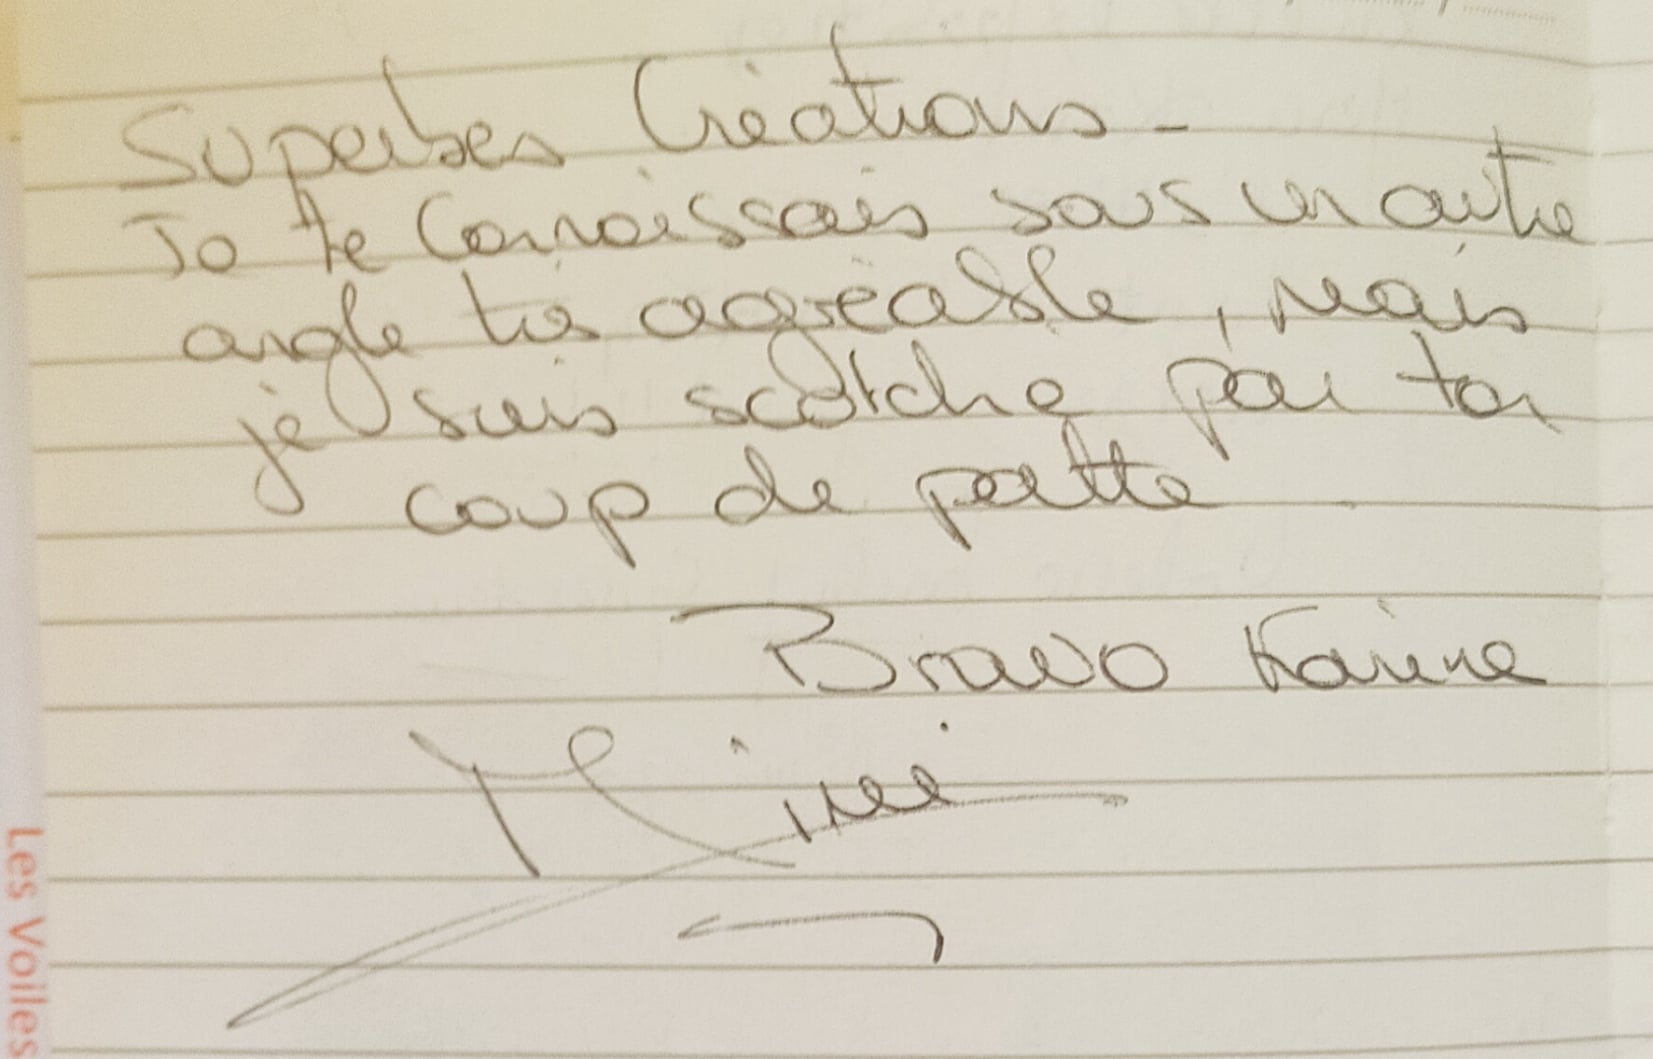 Superbes Créations -
Je te connaissais sous un autre
angle très agréable, mais
je suis scotché par ton
coup de patte
Bravo Karine
Mimi
Les Voiles